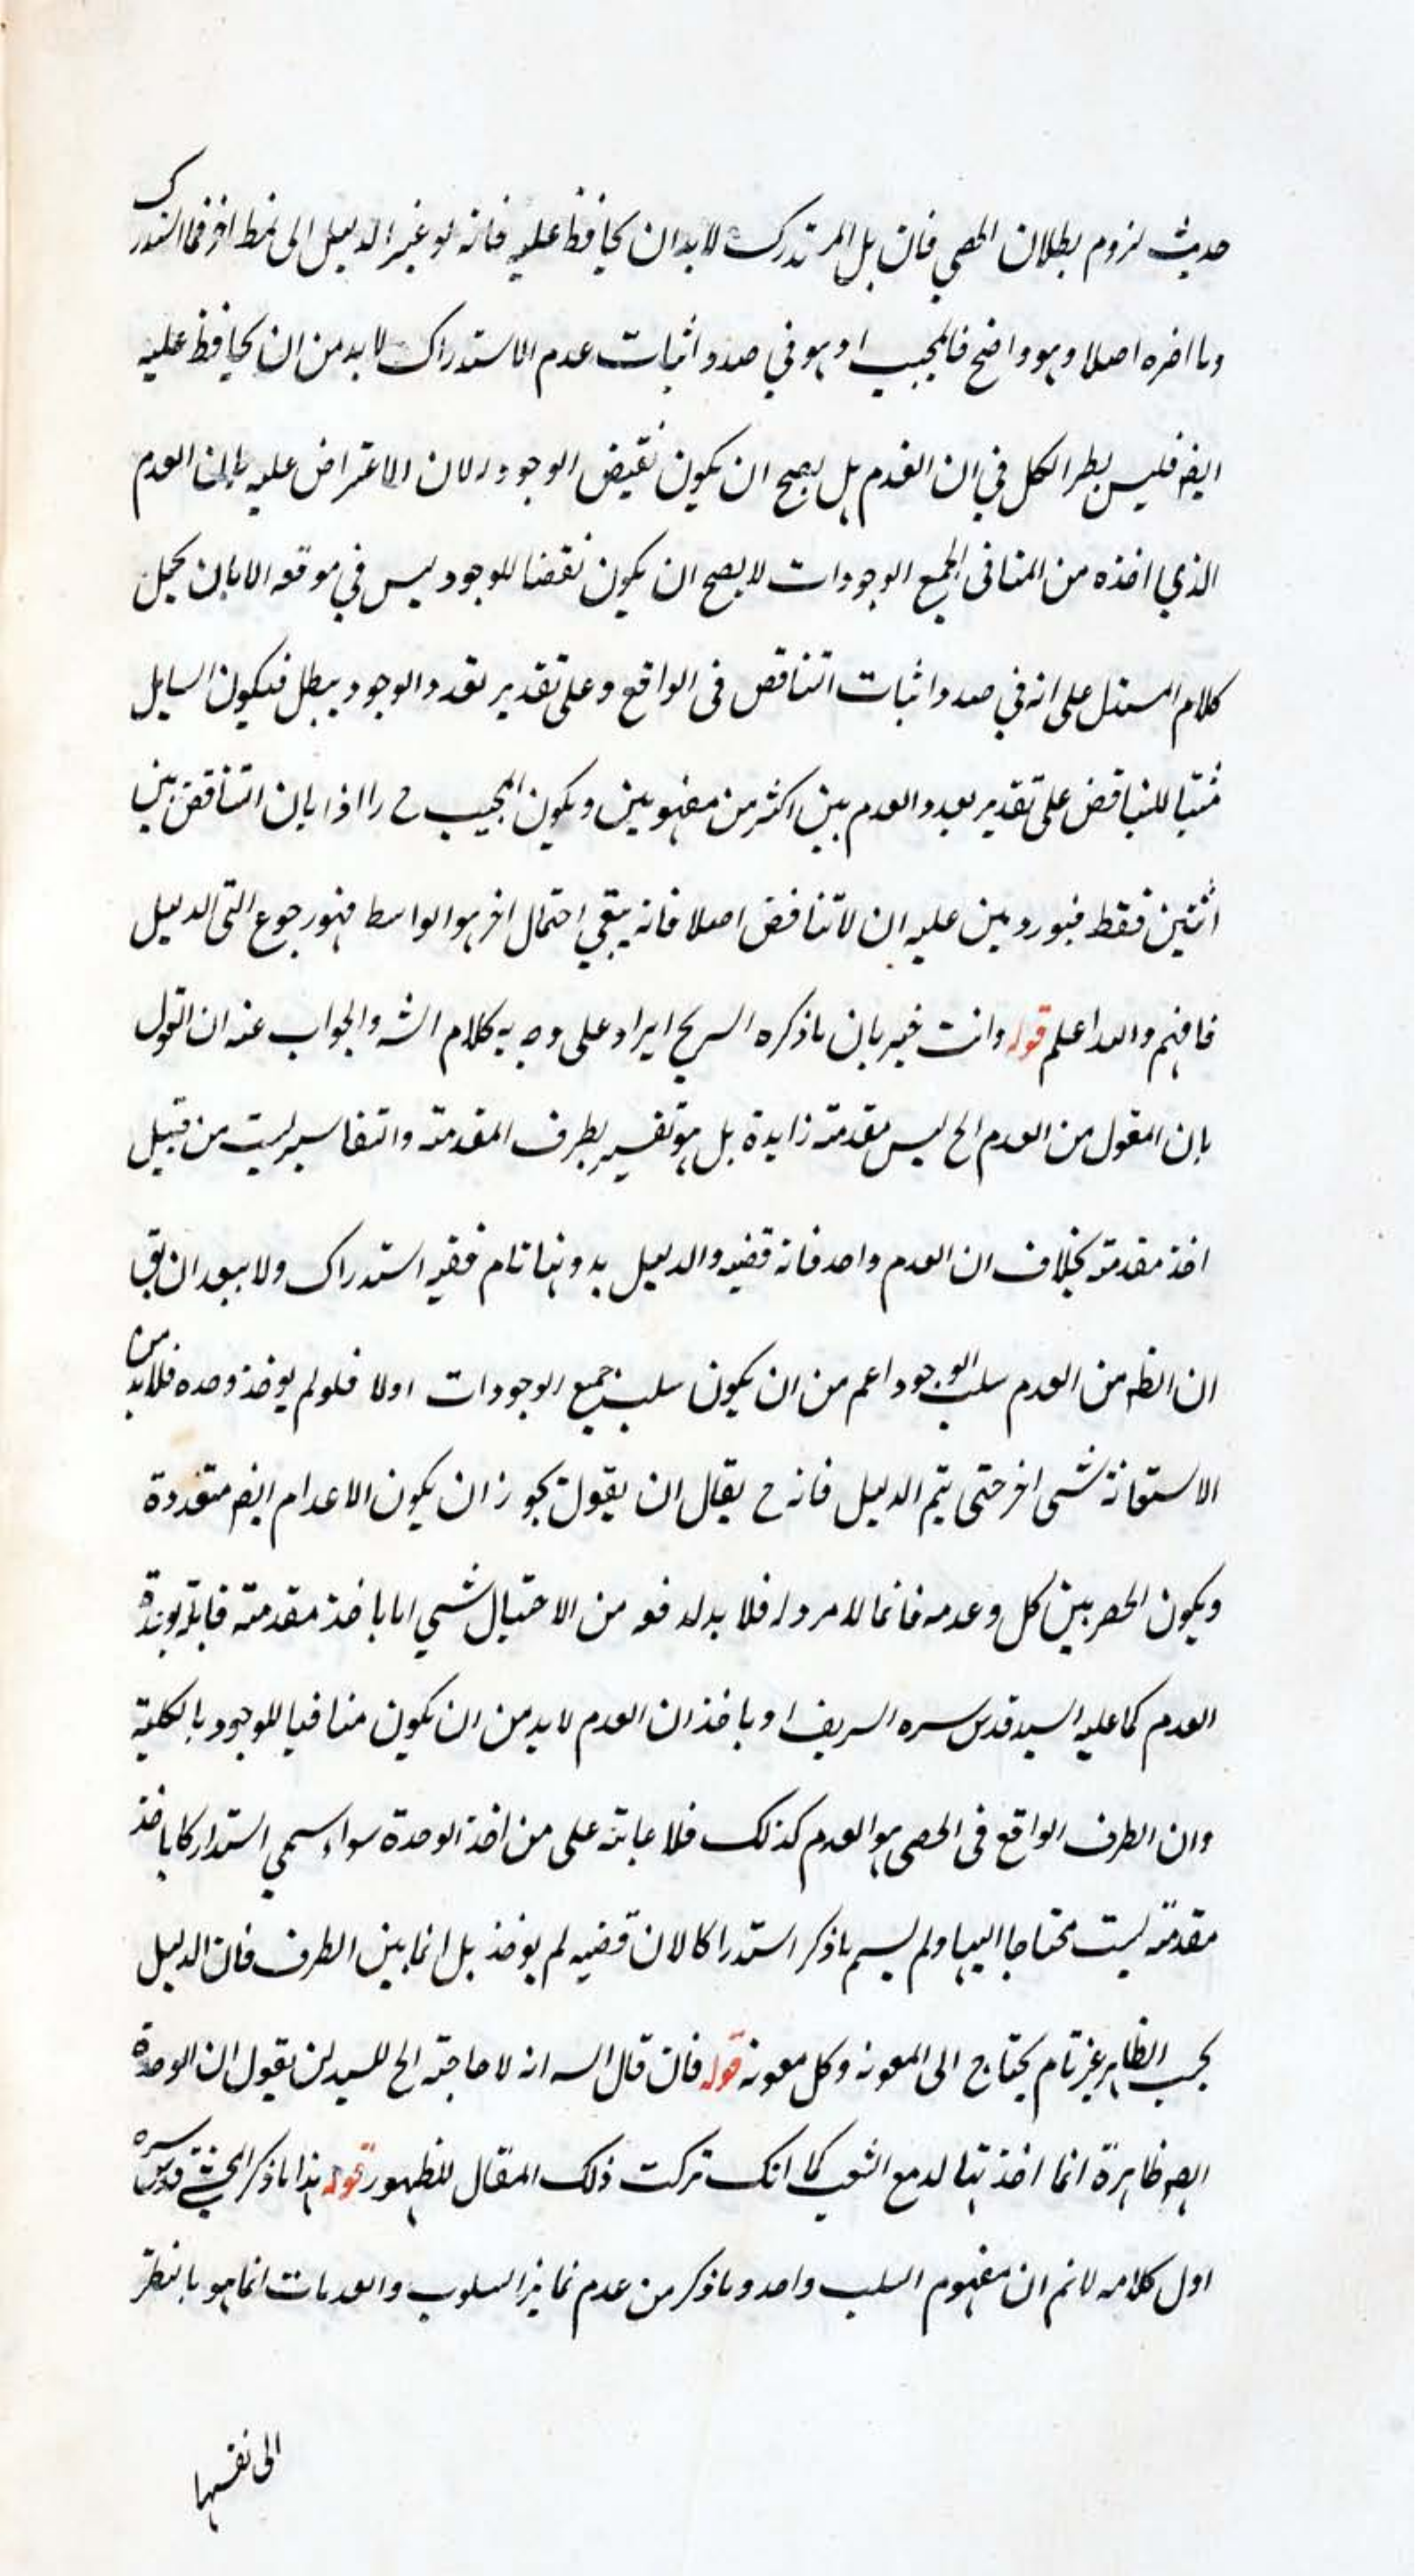 حديث لزوم بطلان الحصر فان بل المستدرك لابد ان يحافظ عليه فانه لو غير الدليل الى نمط اخر فما استدرك
وما اضره اصلا وهو واضح فالمجيب اذ هو في صدد اثبات عدم الاستدراك لابد من ان يحافظ عليه
ايضا فليس نظر الكل في ان العدم هل يصح ان يكون نقيض الوجود لان الاعتراض عليه بان العدم
الذي اخذه من المنافى لجميع الوجودات لا يصح ان يكون نقضا للوجود ليس في موقعه الا بان يحمل
كلام المستدل على انه في صدد اثبات التناقض فى الواقع وعلى تقدير تعدد الوجود يبطل فيكون السايل
مثبتا للتناقض على تقدير تعدد العدم بين اكثر من مفهومين ويكون المجيب ح رادا بان التناقض بين
اثنين فقط فيورد عليه ان لا تناقض اصلا فانه يبقى احتمال اخر هو الواسط فهو رجوع الى الدليل
فافهم والله اعلم قوله وانت خبير بان ما ذكره الشريح ايراد على وجه به كلام الش والجواب عنه ان القول
بان المقول من العدم الخ ليس مقدمة زايدة بل هو تفسير بطرف المقدمة والتفاسير ليست من قبيل
اخذ مقدمة بخلاف ان العدم واحد فانه قضيه والدليل بدونها تام ففيه استدراك ولا يبعد ان يق
ان الظه من العدم سلب الوجود اعم من ان يكون سلب جميع الوجودات اولا فلو لم يوخذ وحده فلابد من
الاستعانة بشي اخر حتى يتم الدليل فانه ح يقال ان يقول يجوز ان يكون الاعدام ايضا متعددة
ويكون الحصر بين كل وعدمه فانما لا مرد له فلا بد لدفعه من الاحتيال بشي اما باخذ مقدمة قايلة بوحدة
العدم كما عليه السيد قدس سره الشريف او باخذ ان العدم لابد من ان يكون منافيا للوجود بالكلية
وان الطرف الواقع فى الحصر هو العدم كذلك فلا عاتبة على من اخذ الوحدة سواء سمي استدراكا باخذ
مقدمة ليست محتاجا اليها ولم يسم ما ذكر استدراكا لان قضيه لم يوخذ بل انما بين الطرف فان الدليل
بحسب الظاهر غير تام يحتاج الى المعونه وكل معونه قوله فان قال الس انه لا حاجة الخ للسيد ان يقول ان الوحدة
ايضا ظاهرة انما اخذتها لدفع الشغب كما انك تركت ذلك المقال للظهور قوله هذا ما ذكر المحشي قدس سره
اول كلامه لانم ان مفهوم السلب واحد وما ذكر من عدم تمايز السلوب والعدمات انما هو بالنظر
الى نفسها